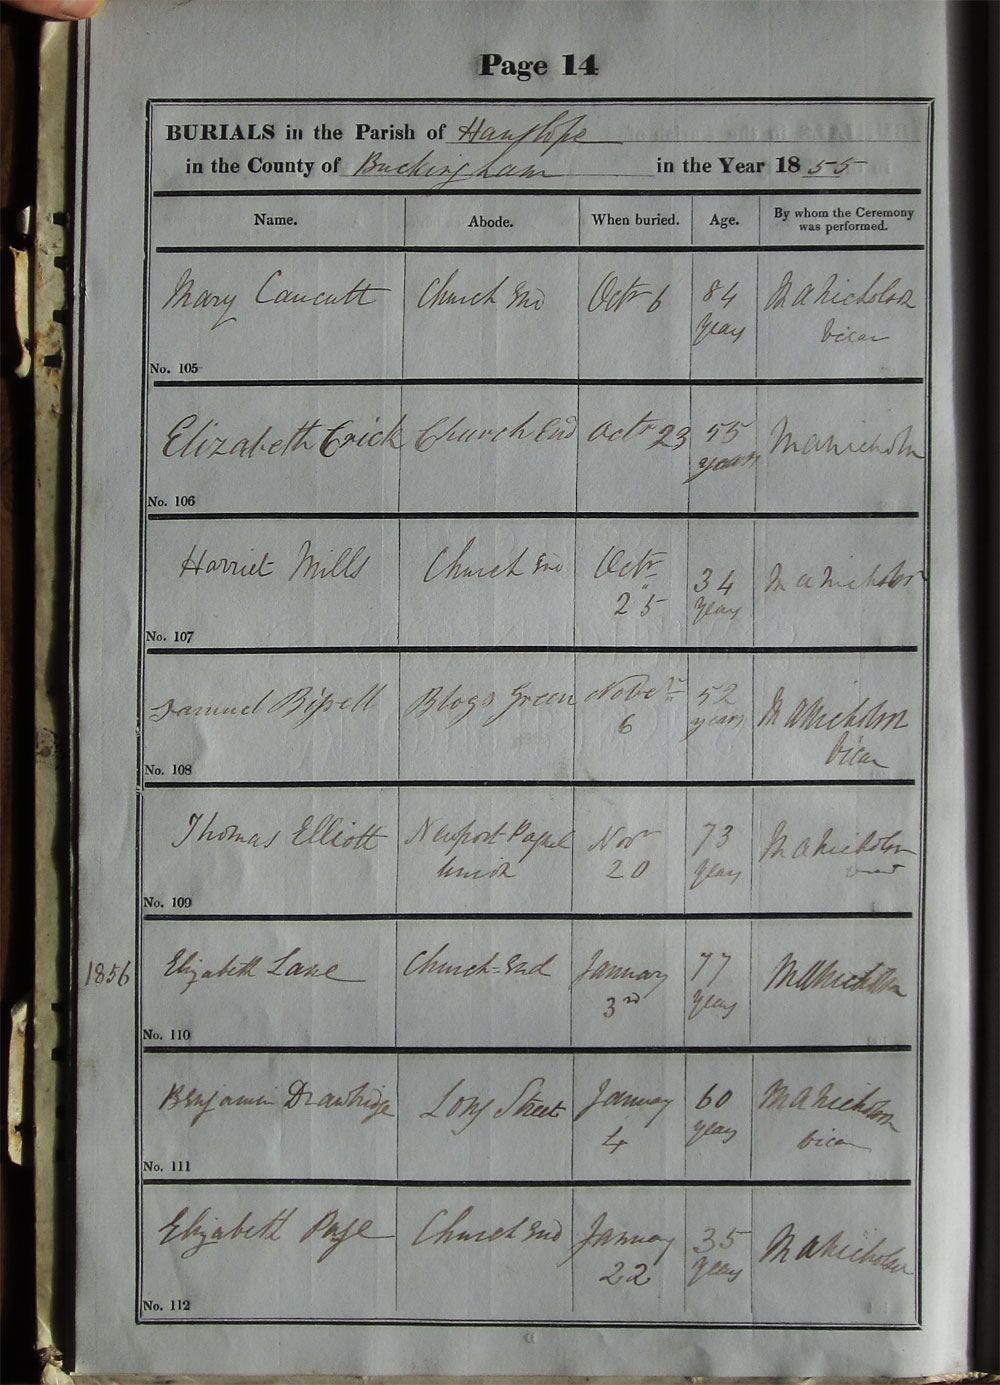 Page 14
BURIALS in the Parish of Hanslope
in the County of Buckingham in the Year 1855
Name. Abode. When buried. Age. By whom the Ceremony
was performed.
Mary Caucutt Church End Octr 6 84 M A Nicholson
years Vicar
No. 105
Elizabeth Crick Church End Octr 23 55 M A Nicholson
years
No. 106
Harriet Mills Church End Octr 34 M A Nicholson
25 years
No. 107
Samuel Bissell Blogs Green Nover 52 M A Nicholson
6 years Vicar
No. 108
Thomas Elliott Newport Pagnel Novr 73 M A Nicholson
Union 20 years
No. 109
1856 Elizabeth Lane Church-End January 77 M A Nicholson
3rd years
No. 110
Benjamin Drawbridge Long Street January 60 M A Nicholson
4 years Vicar
No. 111
Elizabeth Page Church End January 35 M A Nicholson
22 years
No. 112